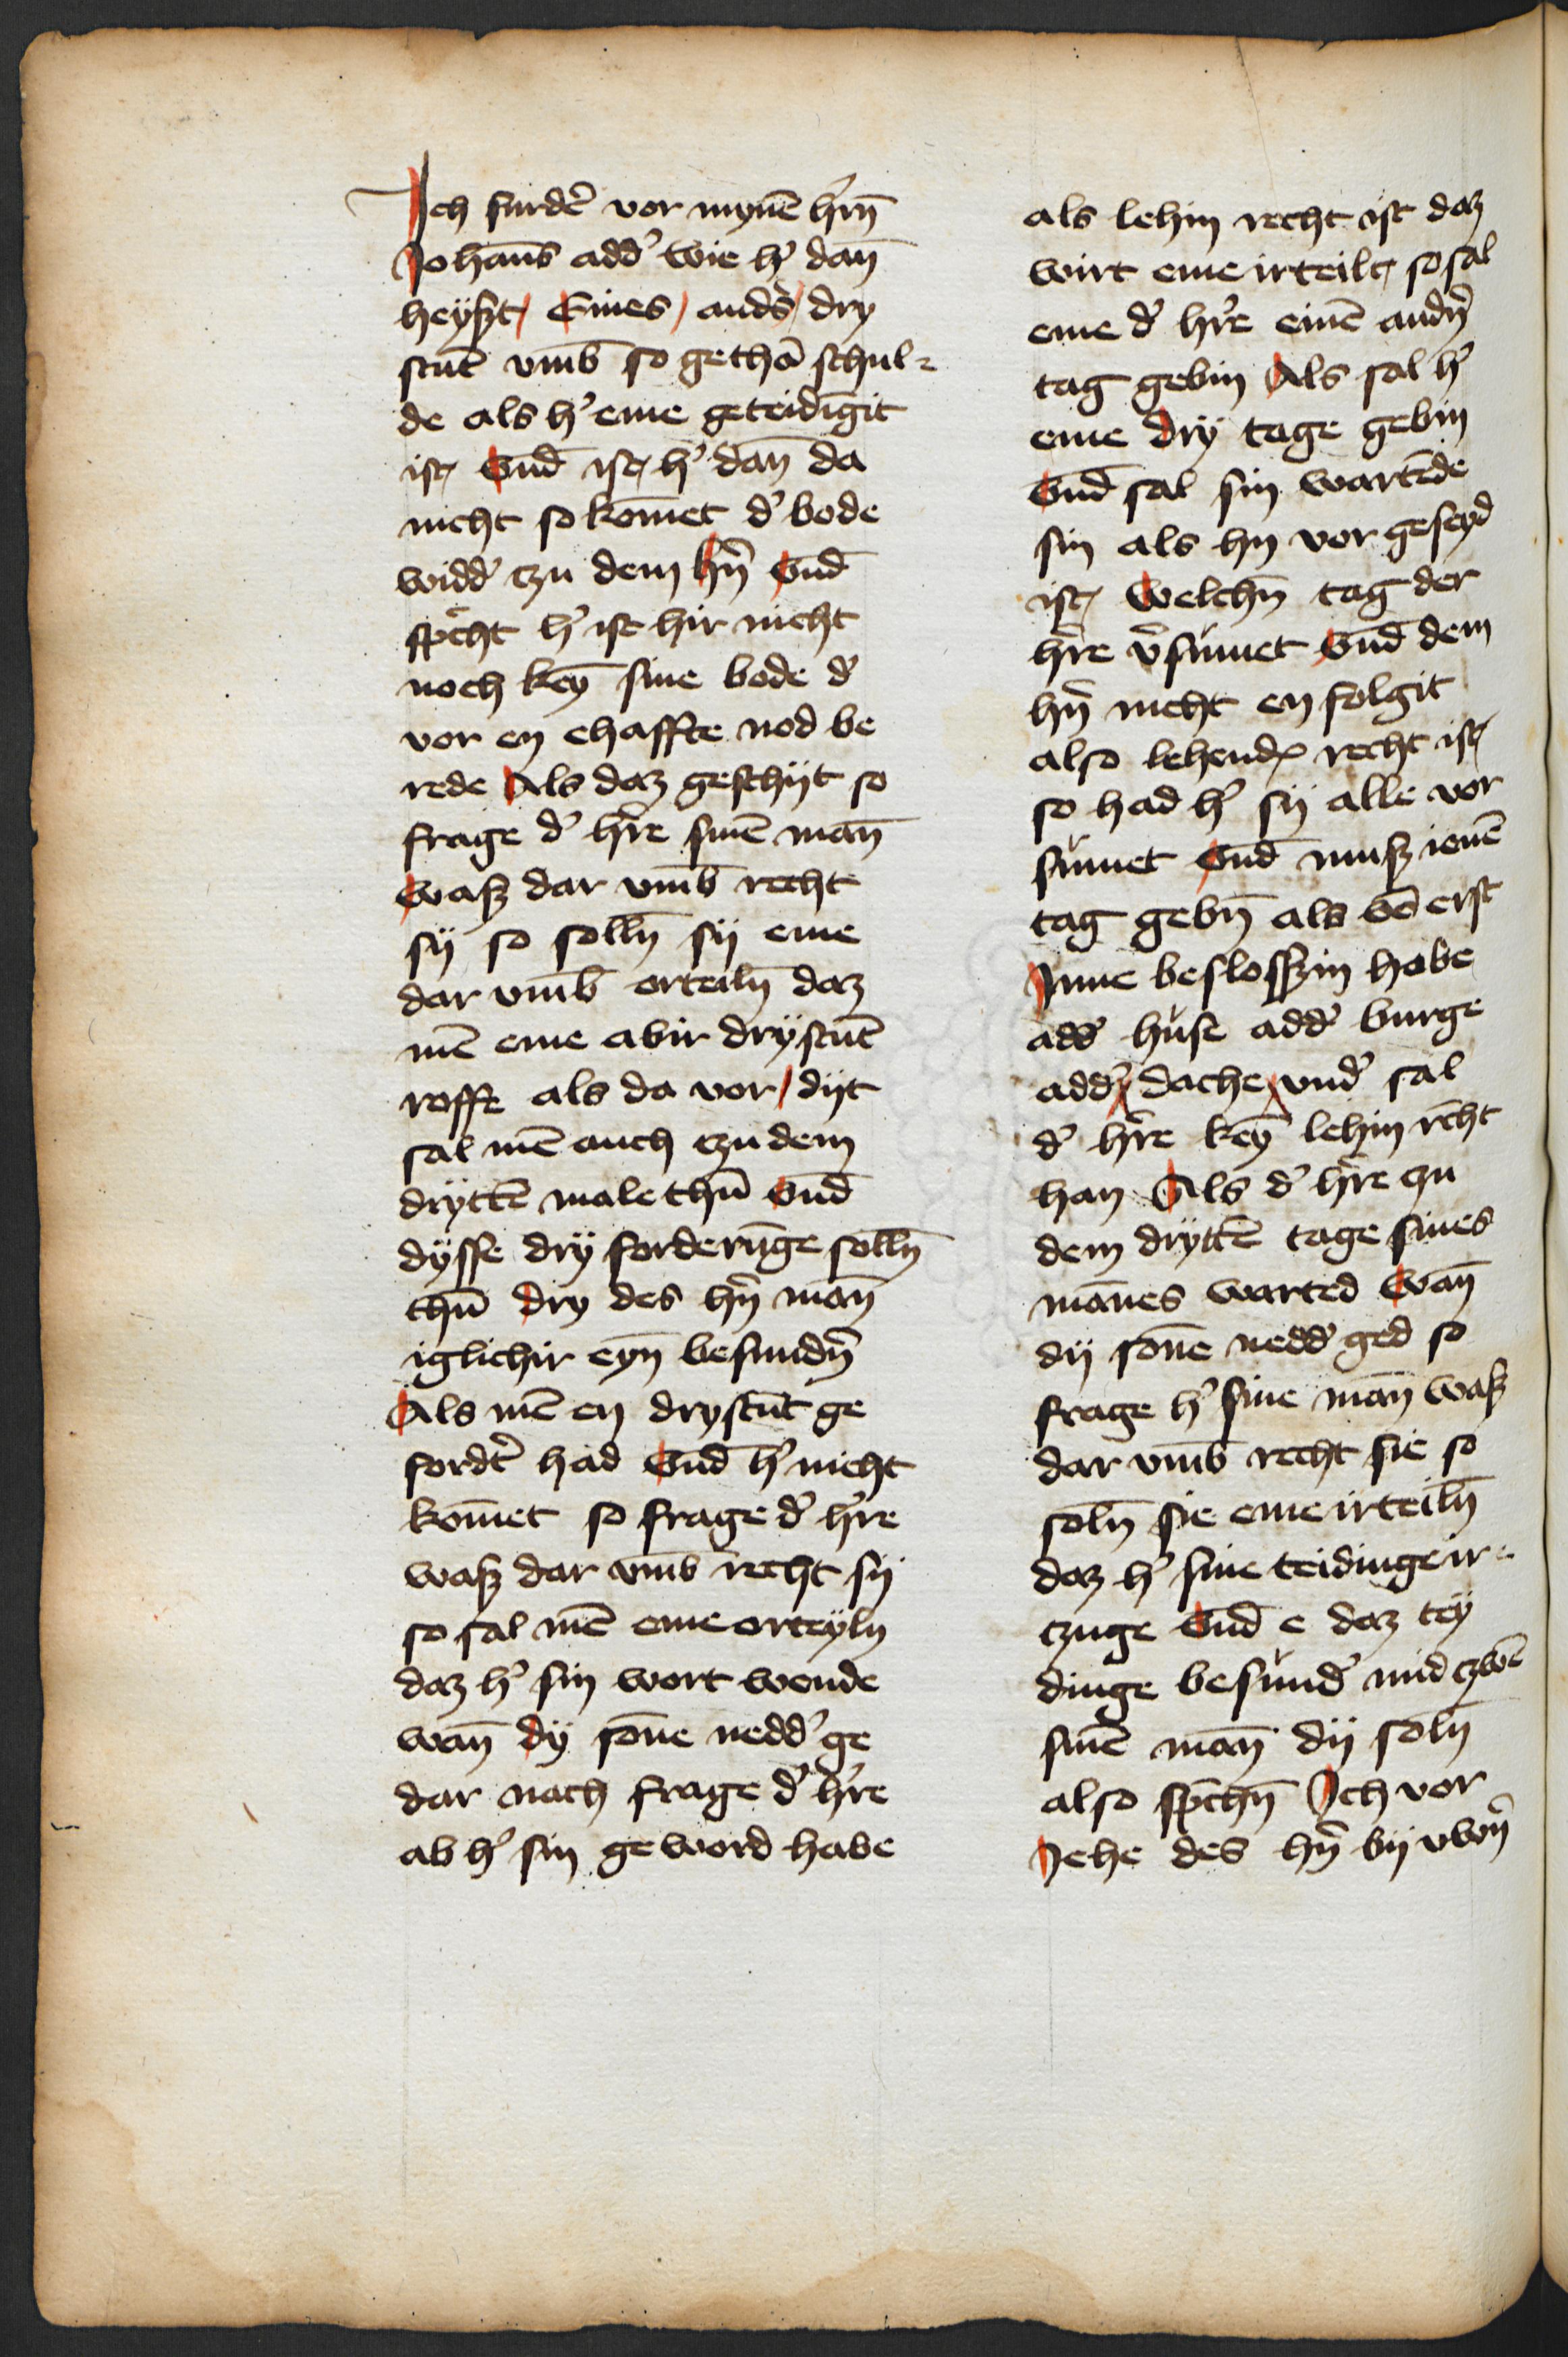 Ich furdẽ vor mynē hˀrn̄
Johān̄s addˀ wie hˀ dan̄
heyſzt / Eines / andˀs / dry
stūt vm̄b so gethā schul⸗
de als hˀ eme geteidīgit
ist Vnd̄ ist hˀ dan̄ da
nicht so kōmet dˀ bode
widdˀ czu dem hˀn̄ Vnd̄
spͤcht hˀ ist hir nicht
noch keȳ sine bode dˀ
vor en ehaffte nod be
rede Als daz geschijt so
frage dˀ hˀre sinē man̄
Waſz dar vm̄b recht
sij so solln̄ sij eme
dar vm̄b orteiln̄ daz
mē eme abir drystūt
roffe als da vor / dijt
sal mē auch czu dem
dryttē male thū Vnd̄
dysse dry forderūge solln̄
thū Dry des hˀn̄ man̄
iglichir eyn̄ besundˀn̄
Als mē en drystūt ge
fordˀt had Vnd̄ hˀ nicht
kōmet so frage dˀ hˀre
waſz dar vm̄b recht sij
so sal mē eme orteyln
daz hˀ sin wort wende
wan̄ dy sōne neddˀ ge
dar nach frage dˀ hˀre
ab hˀ sin geword habe
als lehin recht ist daz
wirt eme irteilt so sal
eme dˀ hˀre einē andˀn̄
tag gebin Als sal hˀ
eme dry tage gebin
Vnd̄ sal sin wartēde
sin als hy vor geseyd
ist Welchn̄ tag der
hˀre vˀsumet Vnd̄ dem
hˀn̄ nicht en folgit
also lehendˀ recht ist
so had hˀ sij alle vor
sumet Vnd̄ muſz ienē
tag gebn̄ als vō erst
Inne beslosſzin habe
addˀ huse addˀ burge
addˀ dache vndˀ sal
dˀ hˀre keȳ lehin rēcht
han Als dˀ hˀre zu
dem dryttē tage sines
mānes warted Wan̄
dij sōne neddˀ ged so
frage hˀ sine man̄ waſz
dar vm̄b recht sie so
soln̄ sie eme irteiln̄
daz hˀ sine teidinge ir⸗
czuge Vnd̄ e daz tey
dinge besundˀ mid czwē
sinē man̄ dij soln̄
also spͤchn̄ Ich vor
Jehe des hˀn̄ bij vwˀn̄